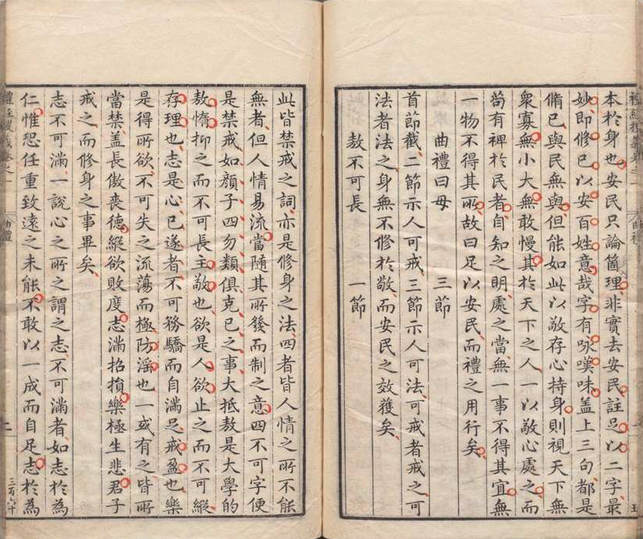 本於身也安民只論箇理非實去安民註足以二字最
妙即修己以安百姓意哉字有咏嘆味蓋上三句都是
脩己與民無與但能如此以敬存心持身則視天下無
衆寡無小大無敢慢其於天下之人一以敬心處之而
苟有裨於民者自知之明處之當無一事不得其宜無
一物不得其所故曰足以安民而禮之用行矣
曲禮曰毋 三節
首節截二節示人可戒三節示人可法可戒者戒之可
法者法之身無不修於敬而安民之效獲矣
敖不可長 一節
此皆禁戒之詞亦是修身之法四者皆人情之所不能
無者但人情易流當隨其所後而制之意四不可字便
是禁戒如顏子四勿類俱克己之事大抵敖是大學的
敖惰抑之而不可長主敬也欲是人欲止之而不可縱
存理也志是心已遂者不可務驕而自滿足戒盈也樂
是得所欲不可失之流蕩而極防淫也一或有之皆所
當禁蓋長傲喪德縱欲敗度志滿招損樂極生悲君子
戒之而修身之事畢矣
志不可滿一說心之所之謂之志不可滿者如志於為
仁惟恐任重致遠之未能不敢以一成而自足志於為